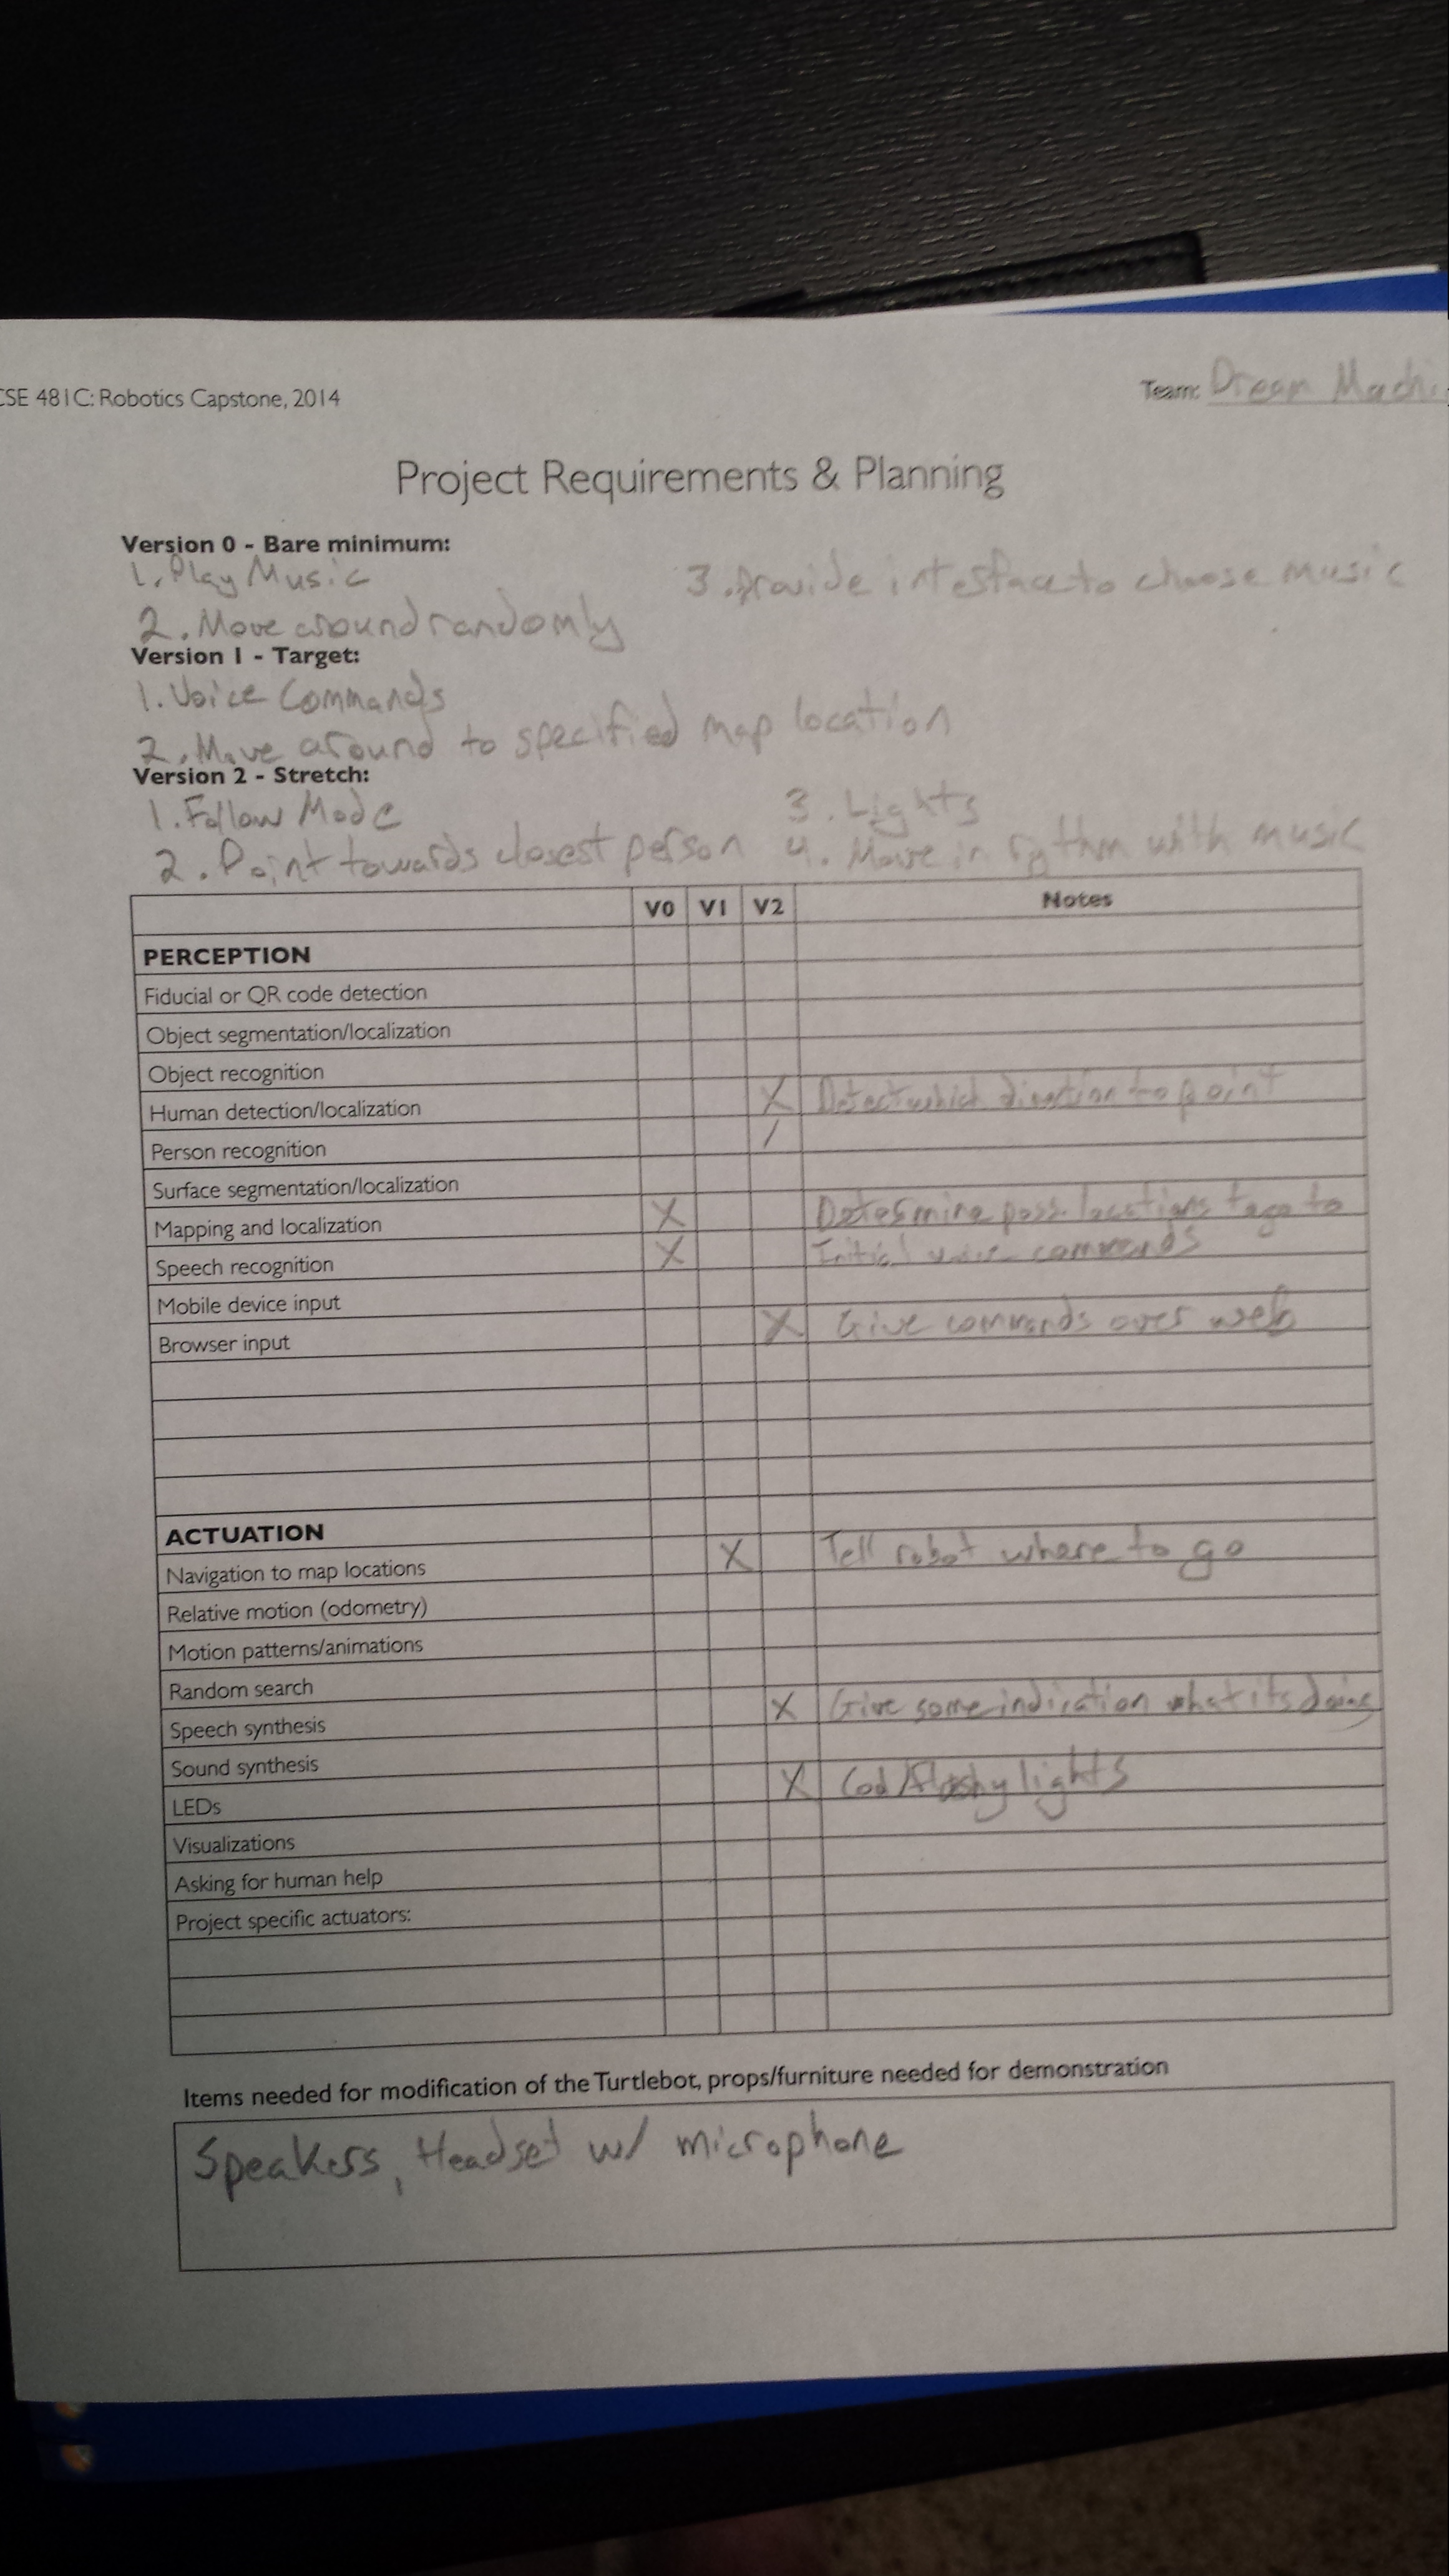 CSE 481C: Robotics Capstone, 2014 Team: Dream Machi
Project Requirements & Planning
Version 0 - Bare minimum:
1. Play Music 3. Provide interface to choose music
2. Move around randomly
Version 1 - Target:
1. Voice Commands
2. Move around to specified map location
Version 2 - Stretch:
1. Follow Mode 3. Lights
2. Point towards closest person 4. Move in rythm with music
V0 V1 V2 Notes
PERCEPTION
Fiducial or QR code detection
Object segmentation/localization
Object recognition
Human detection/localization X Detect which direction to point
Person recognition /
Surface segmentation/localization
Mapping and localization X Determine poss. locations to go to
Speech recognition X Initial voice commands
Mobile device input
Browser input X Give commands over web
ACTUATION
Navigation to map locations X Tell robot where to go
Relative motion (odometry)
Motion patterns/animations
Random search
Speech synthesis X Give some indication what its doing
Sound synthesis
LEDs X Cool/flashy lights
Visualizations
Asking for human help
Project specific actuators:
Items needed for modification of the Turtlebot, props/furniture needed for demonstration
Speakers, Headset w/ microphone